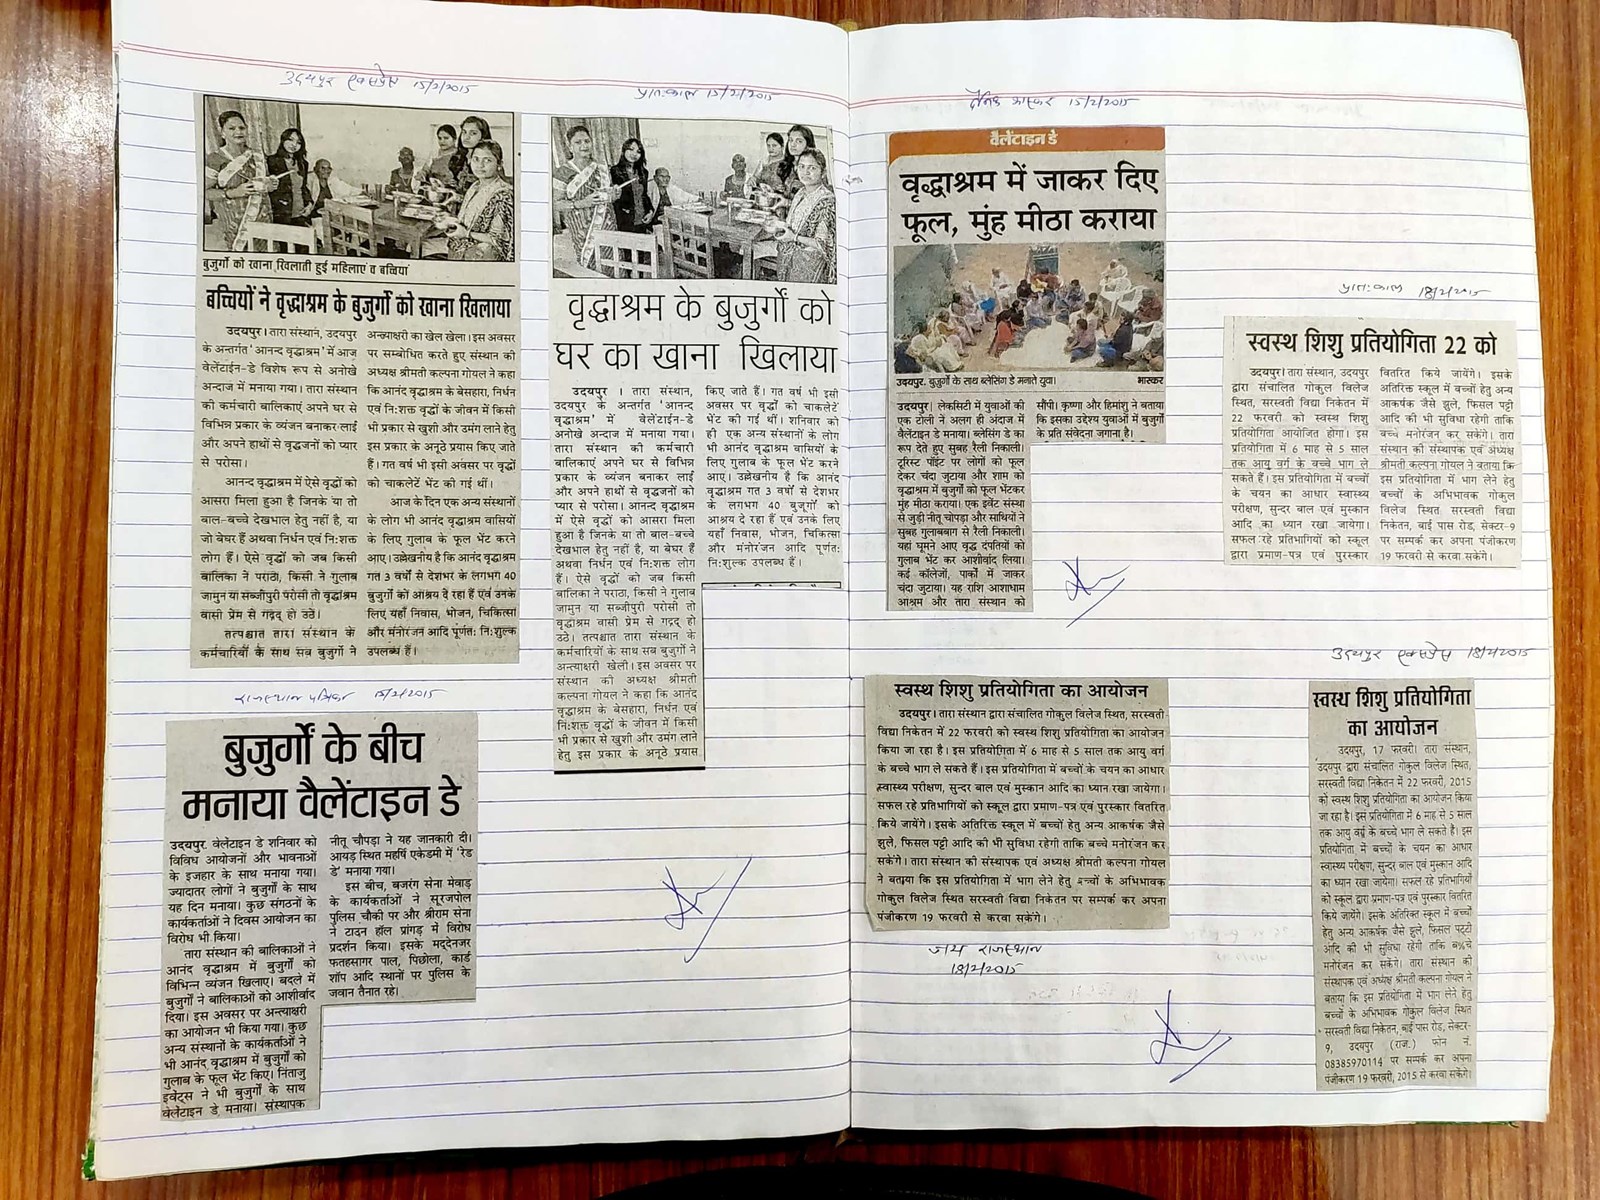 उदयपुर एक्सप्रेस 15/2/2015
बुजुर्गो को खाना खिलाती हुई महिलाएं व बच्चियां
बच्चियों ने वृद्धाश्रम के बुजुर्गो को खाना खिलाया
उदयपुर। तारा संस्थान, उदयपुर
के अन्तर्गत 'आनन्द वृद्धाश्रम' में आज
वेलेंटाईन-डे विशेष रूप से अनोखे
अन्दाज में मनाया गया। तारा संस्थान
की कर्मचारी बालिकाएं अपने घर से
विभिन्न प्रकार के व्यंजन बनाकर लाई
और अपने हाथों से वृद्धजनों को प्यार
से परोसा।
आनन्द वृद्धाश्रम में ऐसे वृद्धों को
आसरा मिला हुआ है जिनके या तो
बाल-बच्चे देखभाल हेतु नहीं है, या
जो बेघर हैं अथवा निर्धन एवं नि:शक्त
लोग हैं। ऐसे वृद्धों को जब किसी
बालिका ने पराठा, किसी ने गुलाब
जामुन या सब्जीपुरी परोसी तो वृद्धाश्रम
वासी प्रेम से गद्गद् हो उठे।
तत्पश्चात तारा संस्थान के
कर्मचारियों के साथ सब बुजुर्गों ने
अन्त्याक्षरी का खेल खेला। इस अवसर
पर सम्बोधित करते हुए संस्थान की
अध्यक्ष श्रीमती कल्पना गोयल ने कहा
कि आनंद वृद्धाश्रम के बेसहारा, निर्धन
एवं नि:शक्त वृद्धों के जीवन में किसी
भी प्रकार से खुशी और उमंग लाने हेतु
इस प्रकार के अनूठे प्रयास किए जाते
हैं। गत वर्ष भी इसी अवसर पर वृद्धों
को चाकलेट भेंट की गई थीं।
आज के दिन एक अन्य संस्थानों
के लोग भी आनंद वृद्धाश्रम वासियों
के लिए गुलाब के फूल भेंट करने
आए। उल्लेखनीय है कि आनंद वृद्धाश्रम
गत 3 वर्षों से देशभर के लगभग 40
बुजुर्गों को आश्रय दे रहा हैं एवं उनके
लिए यहाँ निवास, भोजन, चिकित्सा
और मनोरंजन आदि पूर्णत: नि:शुल्क
उपलब्ध हैं।
प्रात:काल 15/2/2015
वृद्धाश्रम के बुजुर्गों को
घर का खाना खिलाया
उदयपुर । तारा संस्थान,
उदयपुर के अन्तर्गत 'आनन्द
वृद्धाश्रम' में वेलेंटाईन-डे
अनोखे अन्दाज में मनाया गया।
तारा संस्थान की कर्मचारी
बालिकाएं अपने घर से विभिन्न
प्रकार के व्यंजन बनाकर लाई
और अपने हाथों से वृद्धजनों को
प्यार से परोसा। आनन्द वृद्धाश्रम
में ऐसे वृद्धों को आसरा मिला
हुआ है जिनके या तो बाल-बच्चे
देखभाल हेतु नहीं है, या बेघर हैं
अथवा निर्धन एवं नि:शक्त लोग
हैं। ऐसे वृद्धों को जब किसी
बालिका ने पराठा, किसी ने गुलाब
जामुन या सब्जीपुरी परोसी तो
वृद्धाश्रम वासी प्रेम से गद्गद् हो
उठे। तत्पश्चात तारा संस्थान के
कर्मचारियों के साथ सब बुजुर्गों ने
अन्त्याक्षरी खेली। इस अवसर पर
संस्थान की अध्यक्ष श्रीमती
कल्पना गोयल ने कहा कि आनंद
वृद्धाश्रम के बेसहारा, निर्धन एवं
नि:शक्त वृद्धों के जीवन में किसी
भी प्रकार से खुशी और उमंग लाने
हेतु इस प्रकार के अनूठे प्रयास
किए जाते हैं। गत वर्ष भी इसी
अवसर पर वृद्धों को चाकलेटें
भेंट की गई थीं। शनिवार को
ही एक अन्य संस्थानों के लोग
भी आनंद वृद्धाश्रम वासियों के
लिए गुलाब के फूल भेंट करने
आए। उल्लेखनीय है कि आनंद
वृद्धाश्रम गत 3 वर्षों से देशभर
के लगभग 40 बुजुर्गों को
आश्रय दे रहा हैं एवं उनके लिए
यहाँ निवास, भोजन, चिकित्सा
और मनोरंजन आदि पूर्णत:
नि:शुल्क उपलब्ध हैं।
राजस्थान पत्रिका 15/2/2015
बुजुर्गों के बीच
मनाया वैलेंटाइन डे
उदयपुर. वेलेंटाइन डे शनिवार को
विविध आयोजनों और भावनाओं
के इजहार के साथ मनाया गया।
ज्यादातर लोगों ने बुजुर्गों के साथ
यह दिन मनाया। कुछ संगठनों के
कार्यकर्ताओं ने दिवस आयोजन का
विरोध भी किया।
तारा संस्थान की बालिकाओं ने
आनंद वृद्धाश्रम में बुजुर्गों को
विभिन्न व्यंजन खिलाए। बदले में
बुजुर्गों ने बालिकाओं को आशीर्वाद
दिया। इस अवसर पर अन्त्याक्षरी
का आयोजन भी किया गया। कुछ
अन्य संस्थानों के कार्यकर्ताओं ने
भी आनंद वृद्धाश्रम में बुजुर्गों को
गुलाब के फूल भेंट किए। निंताजु
इवेंट्स ने भी बुजुर्गों के साथ
वेलेंटाइन डे मनाया। संस्थापक
नीतू चौपड़ा ने यह जानकारी दी।
आयड़ स्थित महर्षि एकेडमी में 'रेड
डे' मनाया गया।
इस बीच, बजरंग सेना मेवाड़
के कार्यकर्ताओं ने सूरजपोल
पुलिस चौकी पर और श्रीराम सेना
ने टाउन हॉल प्रांगड़ में विरोध
प्रदर्शन किया। इसके मद्देनजर
फतहसागर पाल, पिछोला, कार्ड
शॉप आदि स्थानों पर पुलिस के
जवान तैनात रहे।
दैनिक भास्कर 15/2/2015
वैलेंटाइन डे
वृद्धाश्रम में जाकर दिए
फूल, मुंह मीठा कराया
उदयपुर. बुजुर्गों के साथ ब्लेसिंग डे मनाते युवा। भास्कर
उदयपुर| लेकसिटी में युवाओं की
एक टोली ने अलग ही अंदाज में
वैलेंटाइन डे मनाया। ब्लेसिंग डे का
रूप देते हुए सुबह रैली निकाली।
टूरिस्ट पॉइंट पर लोगों को फूल
देकर चंदा जुटाया और शाम को
वृद्धाश्रम में बुजुर्गों को फूल भेंटकर
मुंह मीठा कराया। एक इवेंट संस्था
से जुड़ी नीतू चोपड़ा और साथियों ने
सुबह गुलाबबाग से रैली निकाली।
यहां घूमने आए वृद्ध दंपतियों को
गुलाब भेंट कर आशीर्वाद लिया।
कई कॉलेजों, पार्कों में जाकर
चंदा जुटाया। यह राशि आशाधाम
आश्रम और तारा संस्थान को
सौंपी। कृष्णा और हिमांशु ने बताया
कि इसका उद्देश्य युवाओं में बुजुर्गों
के प्रति संवेदना जगाना है।
प्रात:काल 18/2/2015
स्वस्थ शिशु प्रतियोगिता 22 को
उदयपुर। तारा संस्थान, उदयपुर
द्वारा संचालित गोकुल विलेज
स्थित, सरस्वती विद्या निकेतन में
22 फरवरी को स्वस्थ शिशु
प्रतियोगिता आयोजित होगा। इस
प्रतियोगिता में 6 माह से 5 साल
तक आयु वर्ग के बच्चे भाग ले
सकते हैं। इस प्रतियोगिता में बच्चों
के चयन का आधार स्वास्थ्य
परीक्षण, सुन्दर बाल एवं मुस्कान
आदि का ध्यान रखा जायेगा।
सफल रहे प्रतिभागियों को स्कूल
द्वारा प्रमाण-पत्र एवं पुरस्कार
वितरित किये जायेंगे। इसके
अतिरिक्त स्कूल में बच्चों हेतु अन्य
आकर्षक जैसे झुले, फिसल पट्टी
आदि की भी सुविधा रहेगी ताकि
बच्चे मनोरंजन कर सकेंगे। तारा
संस्थान की संस्थापक एवं अध्यक्ष
श्रीमती कल्पना गोयल ने बताया कि
इस प्रतियोगिता में भाग लेने हेतु
बच्चों के अभिभावक गोकुल
विलेज स्थित सरस्वती विद्या
निकेतन, बाई पास रोड, सेक्टर-9
पर सम्पर्क कर अपना पंजीकरण
19 फरवरी से करवा सकेंगे।
स्वस्थ शिशु प्रतियोगिता का आयोजन
उदयपुर। तारा संस्थान द्वारा संचालित गोकुल विलेज स्थित, सरस्वती
विद्या निकेतन में 22 फरवरी को स्वस्थ शिशु प्रतियोगिता का आयोजन
किया जा रहा है। इस प्रतियोगिता में 6 माह से 5 साल तक आयु वर्ग
के बच्चे भाग ले सकते हैं। इस प्रतियोगिता में बच्चों के चयन का आधार
स्वास्थ्य परीक्षण, सुन्दर बाल एवं मुस्कान आदि का ध्यान रखा जायेगा।
सफल रहे प्रतिभागियों को स्कूल द्वारा प्रमाण-पत्र एवं पुरस्कार वितरित
किये जायेंगे। इसके अतिरिक्त स्कूल में बच्चों हेतु अन्य आकर्षक जैसे
झुले, फिसल पट्टी आदि की भी सुविधा रहेगी ताकि बच्चे मनोरंजन कर
सकेंगे। तारा संस्थान की संस्थापक एवं अध्यक्ष श्रीमती कल्पना गोयल
ने बताया कि इस प्रतियोगिता में भाग लेने हेतु बच्चों के अभिभावक
गोकुल विलेज स्थित सरस्वती विद्या निकेतन पर सम्पर्क कर अपना
पंजीकरण 19 फरवरी से करवा सकेंगे।
जय राजस्थान
18/2/2015
उदयपुर एक्सप्रेस 18/2/2015
स्वस्थ शिशु प्रतियोगिता
का आयोजन
उदयपुर, 17 फरवरी। तारा संस्थान,
उदयपुर द्वारा संचालित गोकुल विलेज स्थित,
सरस्वती विद्या निकेतन में 22 फरवरी, 2015
को स्वस्थ शिशु प्रतियोगिता का आयोजन किया
जा रहा है। इस प्रतियोगिता में 6 माह से 5 साल
तक आयु वर्ग के बच्चे भाग ले सकते है। इस
प्रतियोगिता में बच्चों के चयन का आधार
स्वास्थ्य परीक्षण, सुन्दर बाल एवं मुस्कान आदि
का ध्यान रखा जायेगा। सफल रहे प्रतिभागियों
को स्कूल द्वारा प्रमाण-पत्र एवं पुरस्कार वितरित
किये जायेंगे। इसके अतिरिक्त स्कूल में बच्चों
हेतु अन्य आकर्षक जैसे झुले, फिसल पट्टी
आदि की भी सुविधा रहेगी ताकि बच्चे
मनोरंजन कर सकेंगे। तारा संस्थान की
संस्थापक एवं अध्यक्ष श्रीमती कल्पना गोयल ने
बताया कि इस प्रतियोगिता में भाग लेने हेतु
बच्चों के अभिभावक गोकुल विलेज स्थित
सरस्वती विद्या निकेतन, बाई पास रोड, सेक्टर-
9, उदयपुर (राज.) फोन नं.
08385970114 पर सम्पर्क कर अपना
पंजीकरण 19 फरवरी, 2015 से करवा सकेंगे।